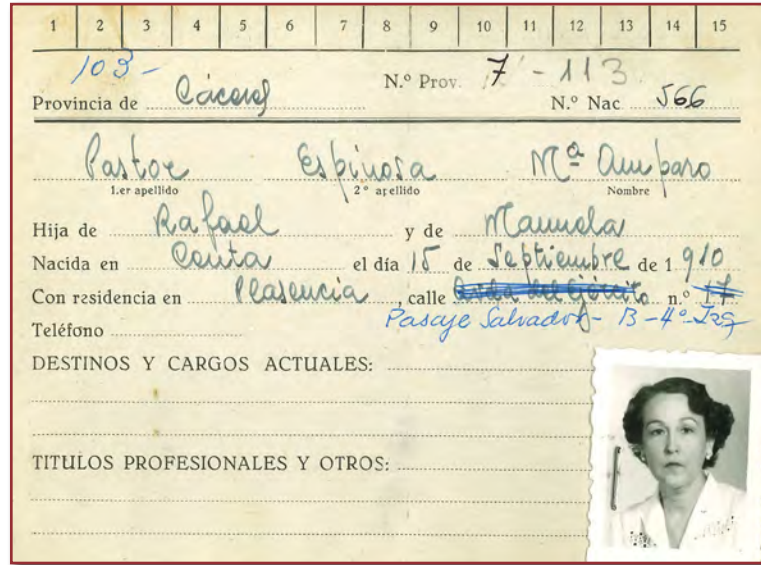 1 2 3 4 5 6 7 8 9 10 11 12 13 14 15
103-
Provincia de Cáceres N.º Prov. 7 - 113 N.º Nac 566
Pastor Espinosa Mª Amparo
1.er apellido 2º apellido Nombre
Hija de Rafael y de Manuela
Nacida en Ceuta el día 15 de Septiembre de 1 910
Con residencia en Plasencia, calle Avda del Ejército n.º 17
Pasaje Salvador - B - 4º Izq
Teléfono
DESTINOS Y CARGOS ACTUALES:
TITULOS PROFESIONALES Y OTROS: